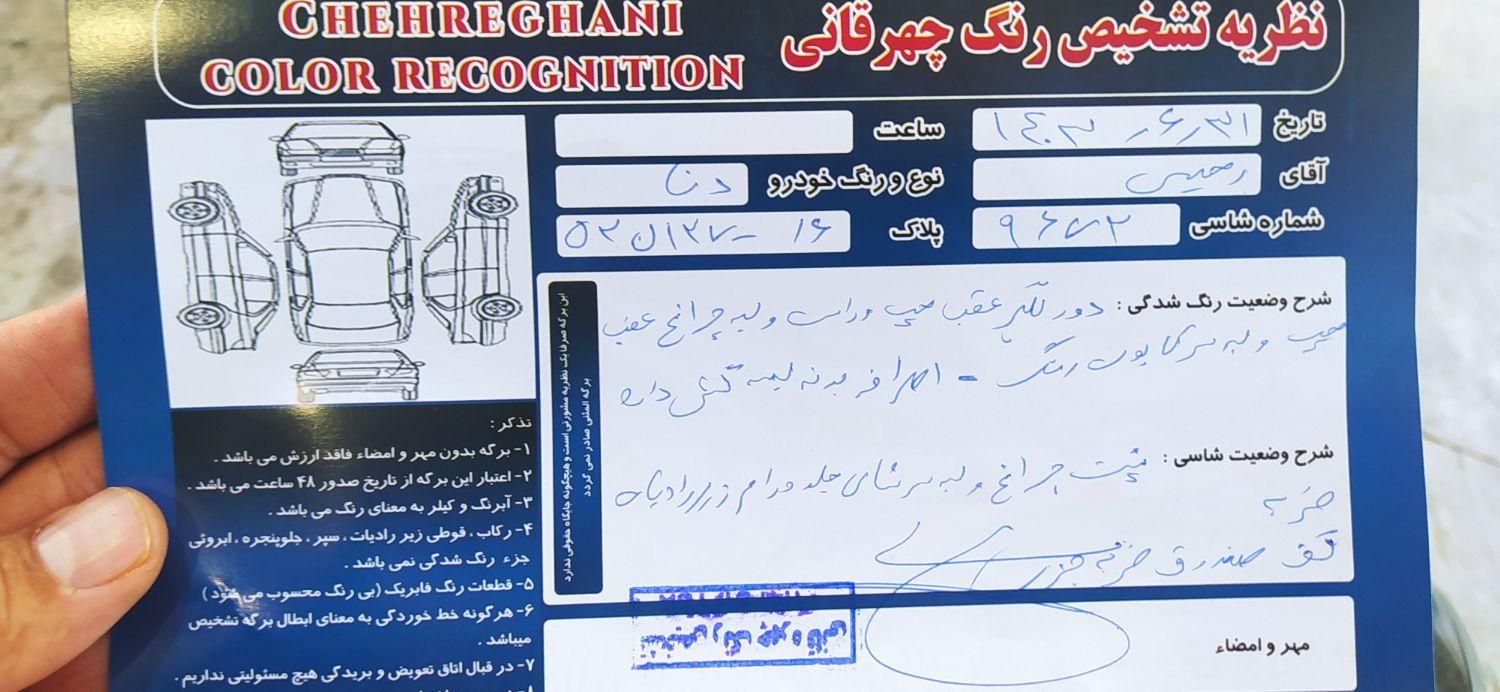 CHEHREGHANI
COLOR RECOGNITION
نظریه تشخیص رنگ چهرقانی
تاریخ ۱۴۰۳ر۶ر۳۱
ساعت
آقای رحیمی
نوع و رنگ خودرو دنا
شماره شاسی ۹۶۷۲
پلاک ۵۲ن۱۳۷-۱۶
شرح وضعیت رنگ شدگی : دور گلگیر عقب چپ و راست و لبه چراغ عقب
چپ و لبه رنگ - اطراف بدنه لیسه گیری دارد
شرح وضعیت شاسی : پشت چراغ و لبه جلو و رام زیر رادیات
ضربه
کف صندوق ضربه جزیی
مهر و امضاء
تشخیص رنگ چهرقانی
این برگه صرفا یک نظریه مشورتی است و هیچگونه جایگاه حقوقی ندارد
برگه المثنی صادر نمی گردد
تذکر :
۱- برگه بدون مهر و امضاء فاقد ارزش می باشد .
۲- اعتبار این برگه از تاریخ صدور ۴۸ ساعت می باشد .
۳- آبرنگ و کیلر به معنای رنگ می باشد .
۴- رکاب ، قوطی زیر رادیات ، سپر ، جلوپنجره ، ابروئی
جزء رنگ شدگی نمی باشد .
۵- قطعات رنگ فابریک (بی رنگ محسوب می شود )
۶- هرگونه خط خوردگی به معنای ابطال برگه تشخیص
میباشد .
۷- در قبال اتاق تعویض و بریدگی هیچ مسئولیتی نداریم .